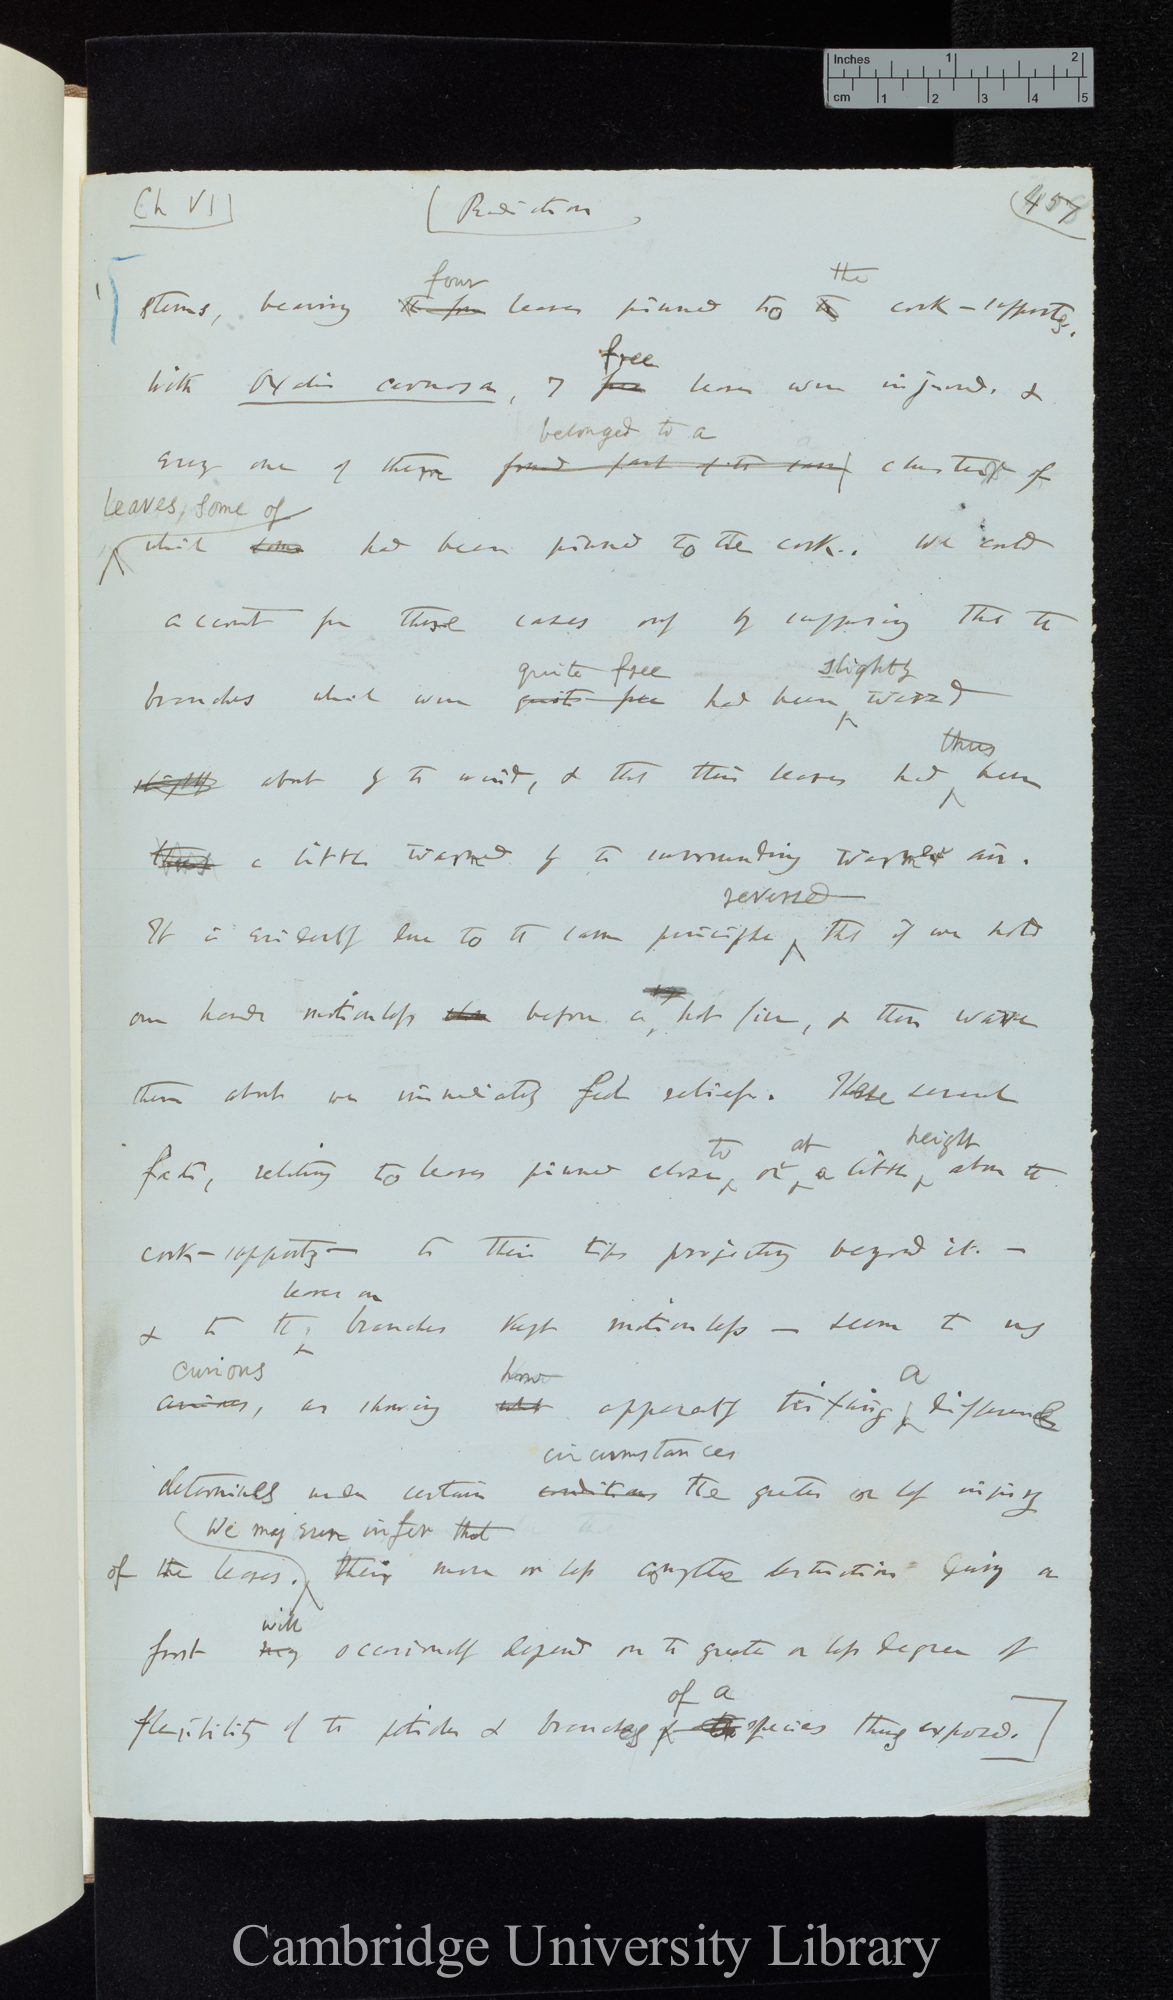 Inches 1 2
cm 1 2 3 4 5
Ch VI
Radiation
457
four the
stems, bearing leaves pinned to cork-supports.
free
With Oxalis carnosa, 7 leaves were injured. &
belonged to a
every one of them cluster of
leaves, some of
which had been pinned to the cork. We could
account for these cases only by supposing that the
quite free slightly
branches which were quite free had been waved
thus
slightly about by the wind, & that their leaves had been
thus a little warmed by the surrounding warmer air.
reversed
It is evidently due to the same principle that if we hold
our hands motionless before a hot fire, & then wave
them about we immediately feel relief. These several
to at height
facts, relating to leaves pinned close or a little above the
cork-supports – to their tips projecting beyond it. –
leaves on
& to the branches kept motionless – seem to us
curious how a
curious, as showing what apparently trifling difference
circumstances
determines under certain conditions the greater or less injury
We may even infer that
of the leaves. their more or less complete destruction during a
will
frost may occasionally depend on the greater or less degree of
of a
flexibility of the petioles & branches species thus exposed.
Cambridge University Library